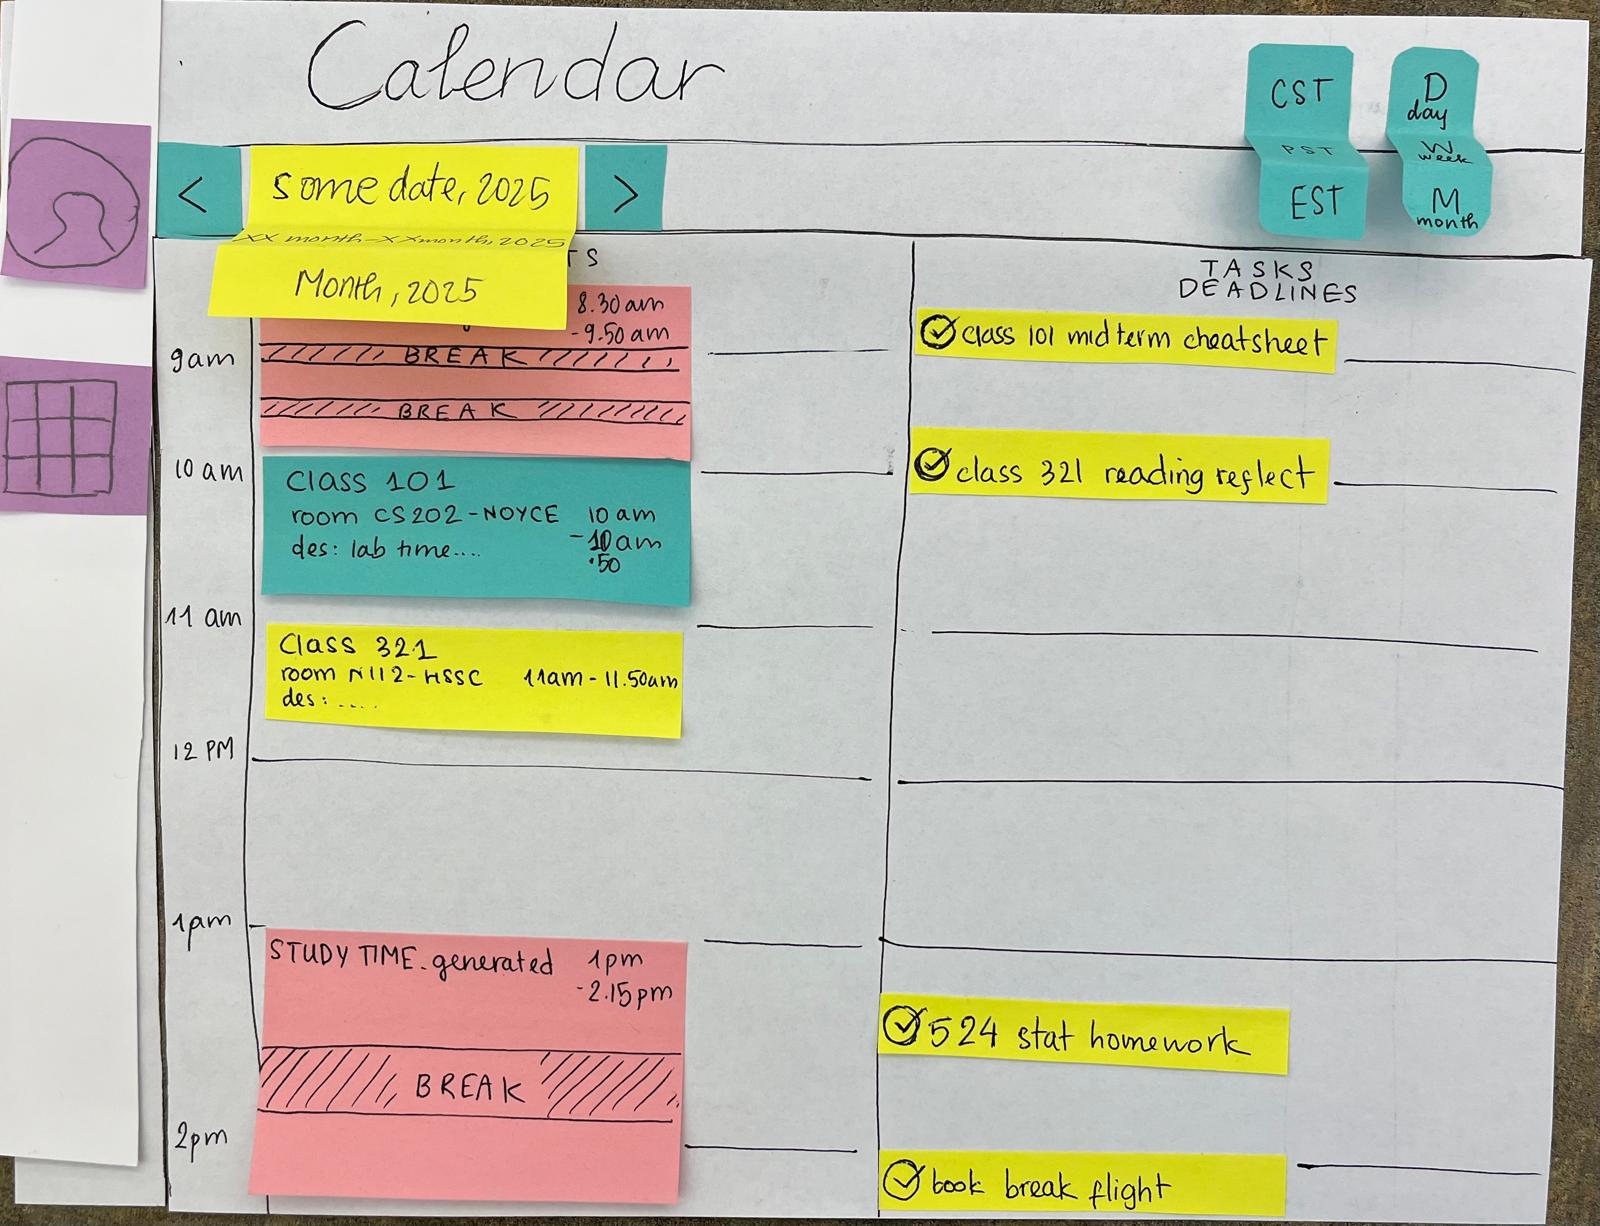 Calendar
CST
PST
EST
D
day
W
week
M
month
<
some date, 2025
>
XX month - XX month, 2025
Month, 2025
TS
8.30 am
- 9.50 am
9am
BREAK
BREAK
10 am
Class 101
room CS202 - NOYCE 10 am
- 10 am
.50
des: lab time....
11 am
Class 321
room N112 - HSSC 11am - 11.50am
des: ....
12 PM
1am
STUDY TIME. generated 1pm
- 2.15 pm
BREAK
2pm
TASKS
DEADLINES
class 101 midterm cheatsheet
class 321 reading reflect
524 stat homework
book break flight